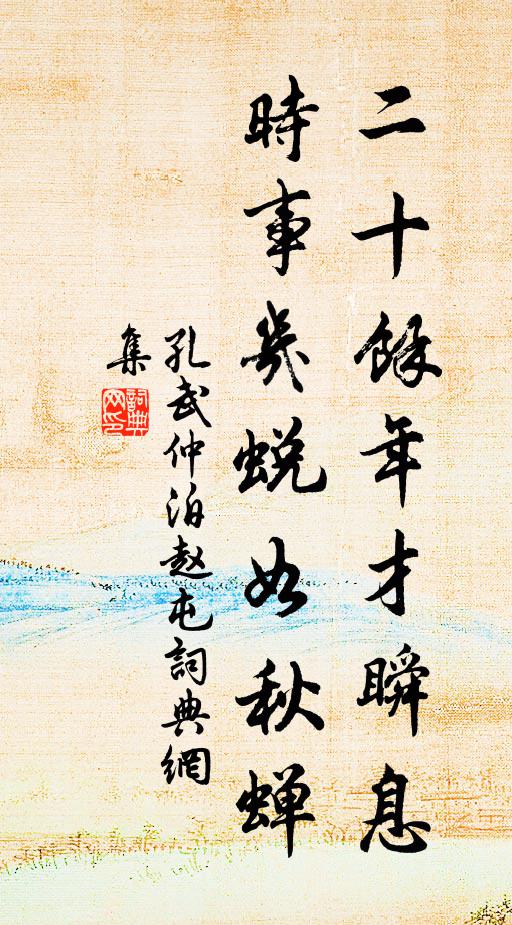 二十餘年才瞬息
時事幾蜕如秋蝉
孔武仲泊赵屯詞典網
集
詞典网印